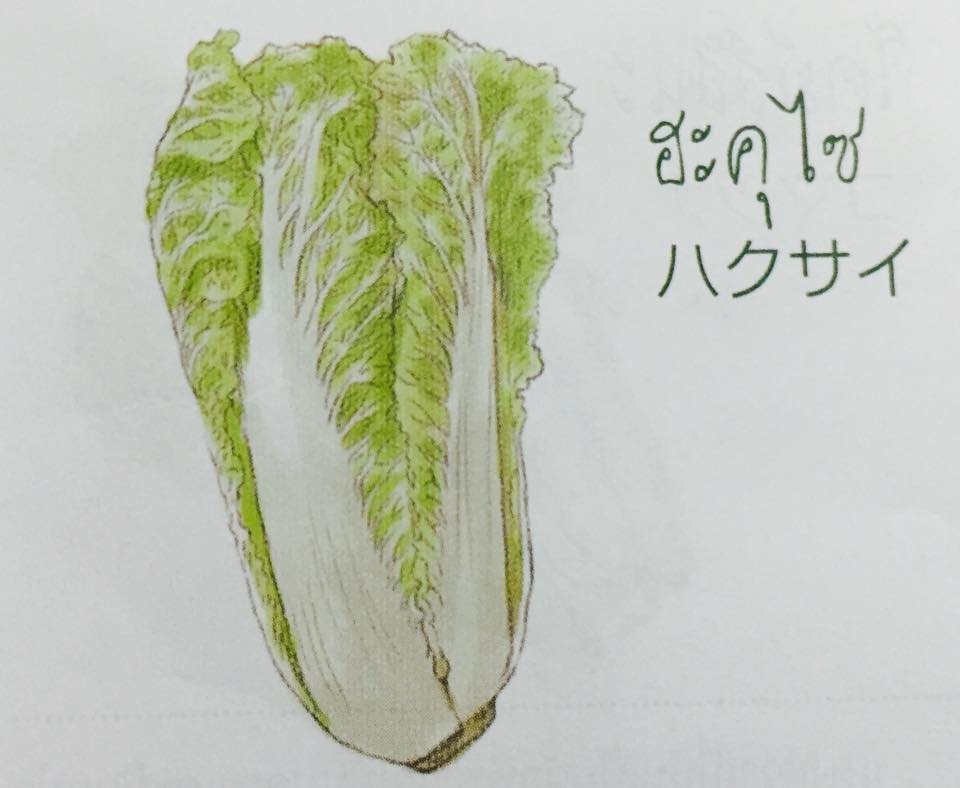 ฮะคุไซ
ハクサイ